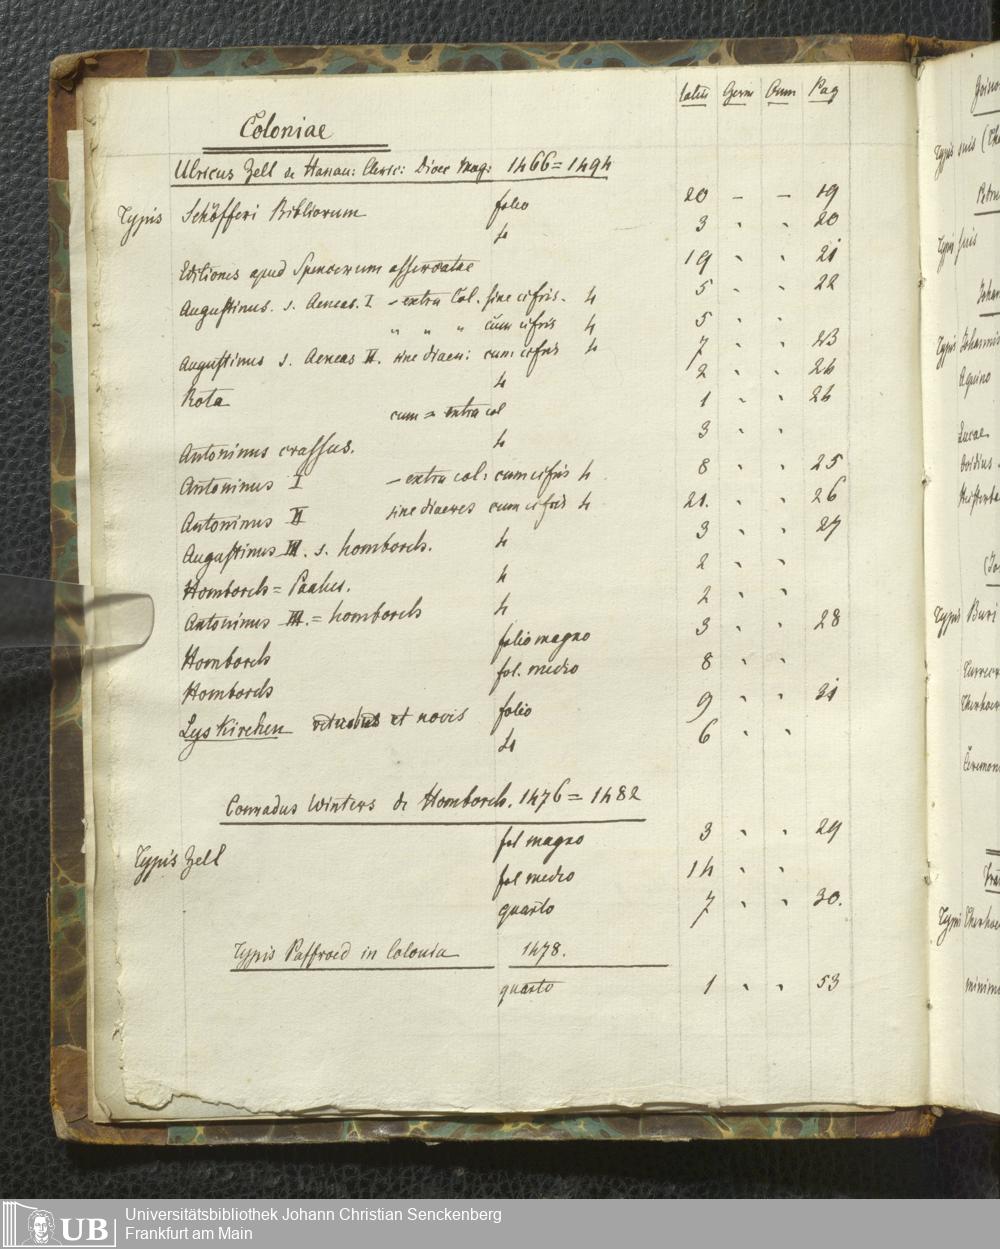 Latin Germ Omn Pag
Coloniae
Ulricus Zell de Hanau: Cleric: Dioec Mog: 1466=1494
Typis Schöfferi Bibliorum folio 20 – – 19
4 3 " " 20
Editiones apud Spencerum asservatae 19 " " 21
Augustinus. s. Aeneas. I – extra Col. sine cifris. 4 5 " " 22
" " " cum cifris 4 5 " "
Augustinus s. Aeneas II. sine diaer: cum cifris 4 7 " " 23
4 2 " " 24
Rota cum = extra col 1 " " 24
Antoninus crassus. 4 3 " "
Antoninus I – extra col: cum cifris 4 8 " " 25
Antoninus II sine diaeres cum cifris 4 21. " " 26
Augustinus III. s. homborch. 4 3 " " 27
Homborch = Paulus. 4 2 " "
Antoninus III. = homborch 4 2 " "
Homborch folio magno 3 " " 28
Homborch fol. medio 8 " "
Lyskirchen et novis folio 9 " " 31
4 6 " "
Conradus Winters de Homborch. 1476=1482
Typis Zell fol magno 3 " " 29
fol medio 14 " "
quarto 7 " " 30.
Typis Paffroed in Colonia 1478.
quarto 1 " " 53
Typis suis
Typis suis
Typis Johannis
Aquino
Lucae
Ovidius
Typis Buri
Typis
UB Universitätsbibliothek Johann Christian Senckenberg
Frankfurt am Main